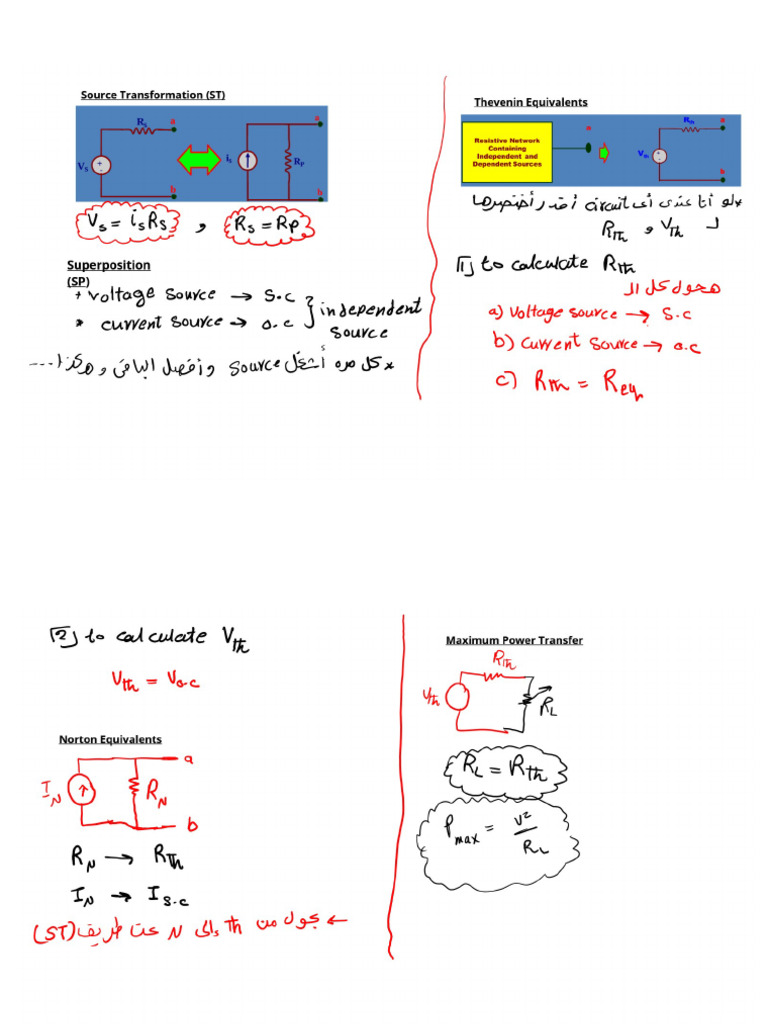 Source Transformation (ST)
Rs
a
Vs
+
-
b
is
a
RP
b
Vs = is Rs , Rs = Rp
Superposition
(SP)
* voltage source → S.C
* current source → o.c } independent source
* كل مره أشغل source وأفصل الباقى وهكذا ....
Thevenin Equivalents
Resistive Network
Containing
Independent and
Dependent Sources
a
Rth
a
Vth
+
-
* لو أنا عندى أى circuit أقدر أختصرها
لـ Vth و Rth
[1] to calculate Rth
هحول كل الـ
a) Voltage source → S.C
b) Current source → o.c
c) Rth = Req
[2] to calculate Vth
Vth = Vo.c
Norton Equivalents
a
IN
RN
b
RN → Rth
IN → Is.c
← بحول من th إلى N عن طريق (ST)
Maximum Power Transfer
Rth
Vth
RL
RL = Rth
Pmax = V²/RL